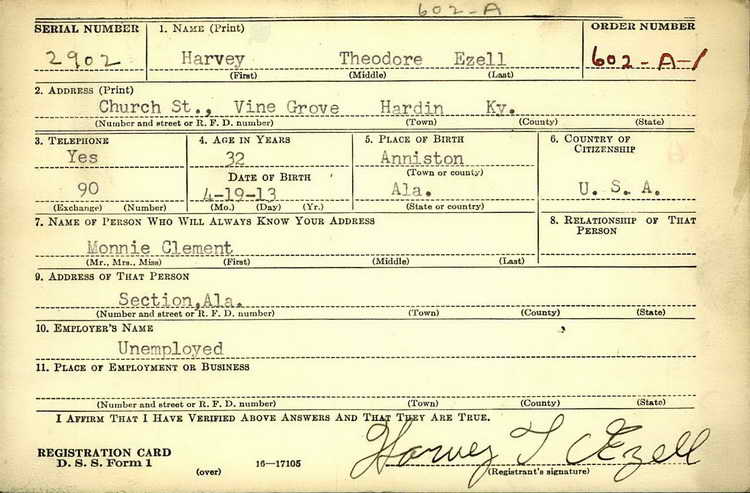 602-A
SERIAL NUMBER 1. NAME (Print) ORDER NUMBER
2902 Harvey Theodore Ezell 602-A-1
(First) (Middle) (Last)
2. ADDRESS (Print)
Church St., Vine Grove Hardin Ky.
(Number and street or R. F. D. number) (Town) (County) (State)
3. TELEPHONE 4. AGE IN YEARS 5. PLACE OF BIRTH 6. COUNTRY OF CITIZENSHIP
Yes 32 Anniston
DATE OF BIRTH (Town or county)
90 4-19-13 Ala. U. S. A.
(Exchange) (Number) (Mo.) (Day) (Yr.) (State or country)
7. NAME OF PERSON WHO WILL ALWAYS KNOW YOUR ADDRESS 8. RELATIONSHIP OF THAT PERSON
Monnie Clement
(Mr., Mrs., Miss) (First) (Middle) (Last)
9. ADDRESS OF THAT PERSON
Section,Ala.
(Number and street or R. F. D. number) (Town) (County) (State)
10. EMPLOYER'S NAME
Unemployed
11. PLACE OF EMPLOYMENT OR BUSINESS
(Number and street or R. F. D. number) (Town) (County) (State)
I AFFIRM THAT I HAVE VERIFIED ABOVE ANSWERS AND THAT THEY ARE TRUE.
Harvey T Ezell
REGISTRATION CARD
D. S. S. Form 1 (over) 16—17105 (Registrant's signature)